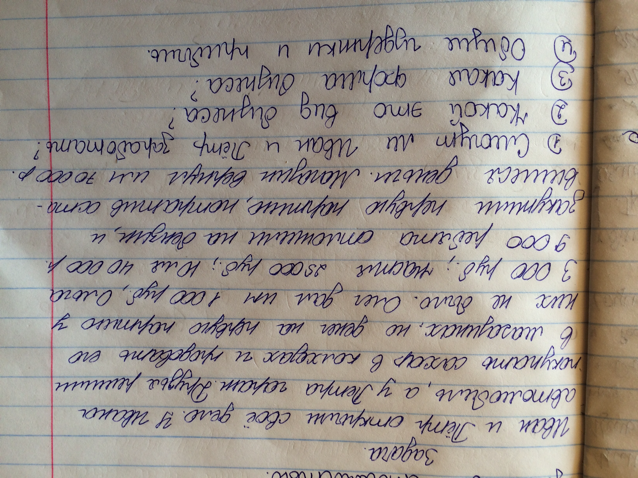 Задача.
Иван и Пётр открыли своё дело. У Ивана
автомобиль, а у Петра гараж. Друзья решили
покупать сахар в колхозах и продавать его
в магазинах, но денег на первую партию у
них не было. Олег дал им 1000 руб, Ольга
3 000 руб.; Настя 25000 руб; Юля 40 000 р.
9 000 ребята отложили на бензин, и
закупили первую партию, потратив оста-
вшиеся деньги. Магазин вернул им 70 000 р.
1) Смогут ли Иван и Пётр заработать?
2) Какой это вид бизнеса?
3) Какая форма бизнеса?
4) Общие издержки и прибыль.